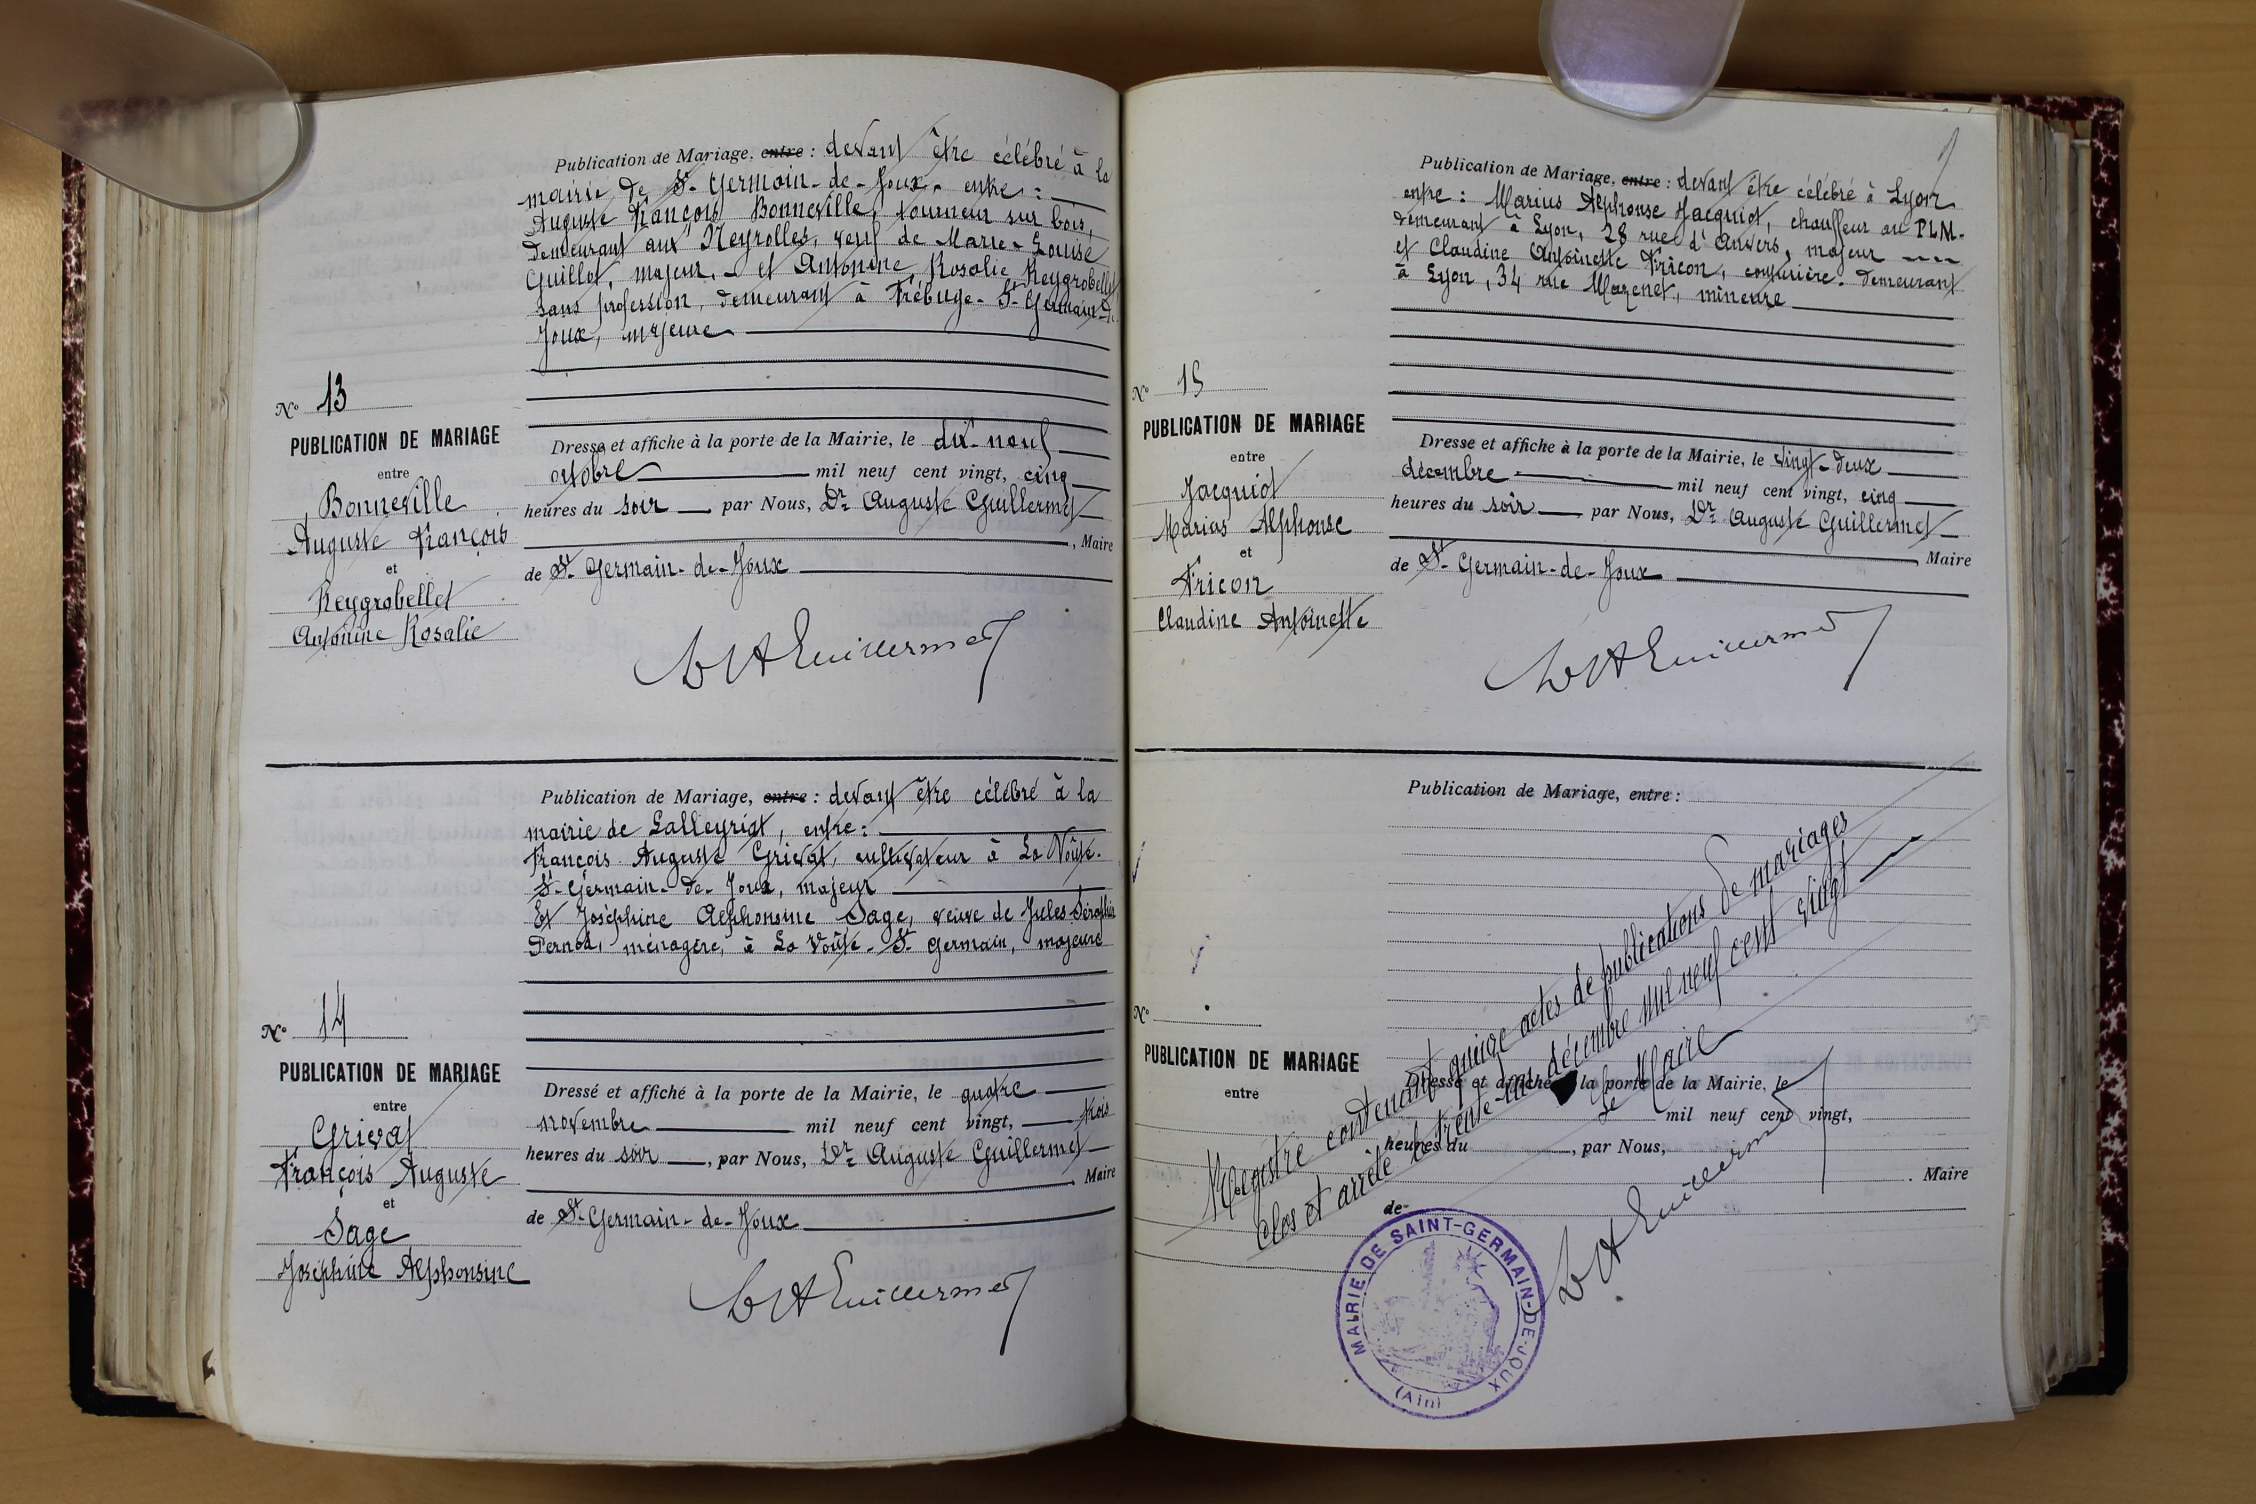 Publication de Mariage, entre : devant être célébré à la
mairie de St-Germain-de-Joux- entre :
Auguste François Bonneville, tourneur sur bois,
demeurant aux Neyrolles, veuf de Marie-Louise
Guillot, majeur, - et Antonine Rosalie Reygrobellet
sans profession, demeurant à Trébuge- St-Germain-de-
Joux, majeure
N° 13
PUBLICATION DE MARIAGE
entre
Bonneville
Auguste François
et
Reygrobellet
Antonine Rosalie
Dressé et affiché à la porte de la Mairie, le dix-neuf
octobre mil neuf cent vingt, cinq
heures du soir, par Nous, Dr Auguste Guillermet
, Maire
de St-Germain-de-Joux
Dr A Guillermet
Publication de Mariage, entre : devant être célébré à la
mairie de Lalleyriat, entre :
François Auguste Grivat, cultivateur à La Voûte-
St-Germain-de-Joux, majeur
Et Joséphine Alphonsine Sage, veuve de Jules Séraphin
Pernod, ménagère, à La Voûte- St Germain, majeure
N° 14
PUBLICATION DE MARIAGE
entre
Grivat
François Auguste
et
Sage
Joséphine Alphonsine
Dressé et affiché à la porte de la Mairie, le quatre
novembre mil neuf cent vingt, trois
heures du soir, par Nous, Dr Auguste Guillermet
, Maire
de St-Germain-de-Joux
Dr A Guillermet
Publication de Mariage, entre : devant être célébré à Lyon
entre : Marius Alphonse Jacquiot, chauffeur au PLM-
demeurant à Lyon, 28 rue d'Anvers, majeur
et Claudine Antoinette Fricon, couturière- demeurant
à Lyon, 34 rue Mazenet, mineure
N° 15
PUBLICATION DE MARIAGE
entre
Jacquiot
Marius Alphonse
et
Fricon
Claudine Antoinette
Dressé et affiché à la porte de la Mairie, le vingt-deux
décembre mil neuf cent vingt, cinq
heures du soir, par Nous, Dr Auguste Guillermet
Maire
de St-Germain-de-Joux
Dr A Guillermet
Publication de Mariage, entre :
N°
PUBLICATION DE MARIAGE
entre
Dressé et affiché à la porte de la Mairie, le
mil neuf cent vingt,
heures du , par Nous,
. Maire
de
Registre contenant quinze actes de publications de mariages
clos et arrêté le trente-un décembre mil neuf cent vingt
Le Maire
Dr A Guillermet
MAIRIE DE SAINT-GERMAIN-DE-JOUX
(Ain)